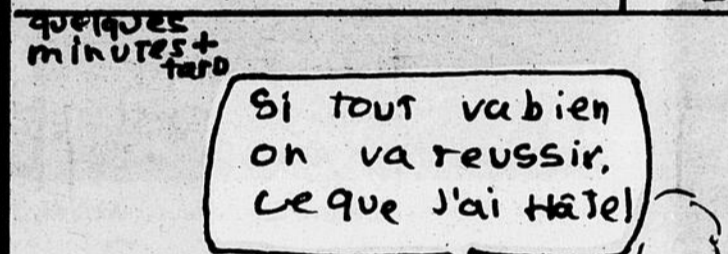 quelques
minutes +
tard
Si tout va bien
on va reussir.
ce que J'ai Hâte!